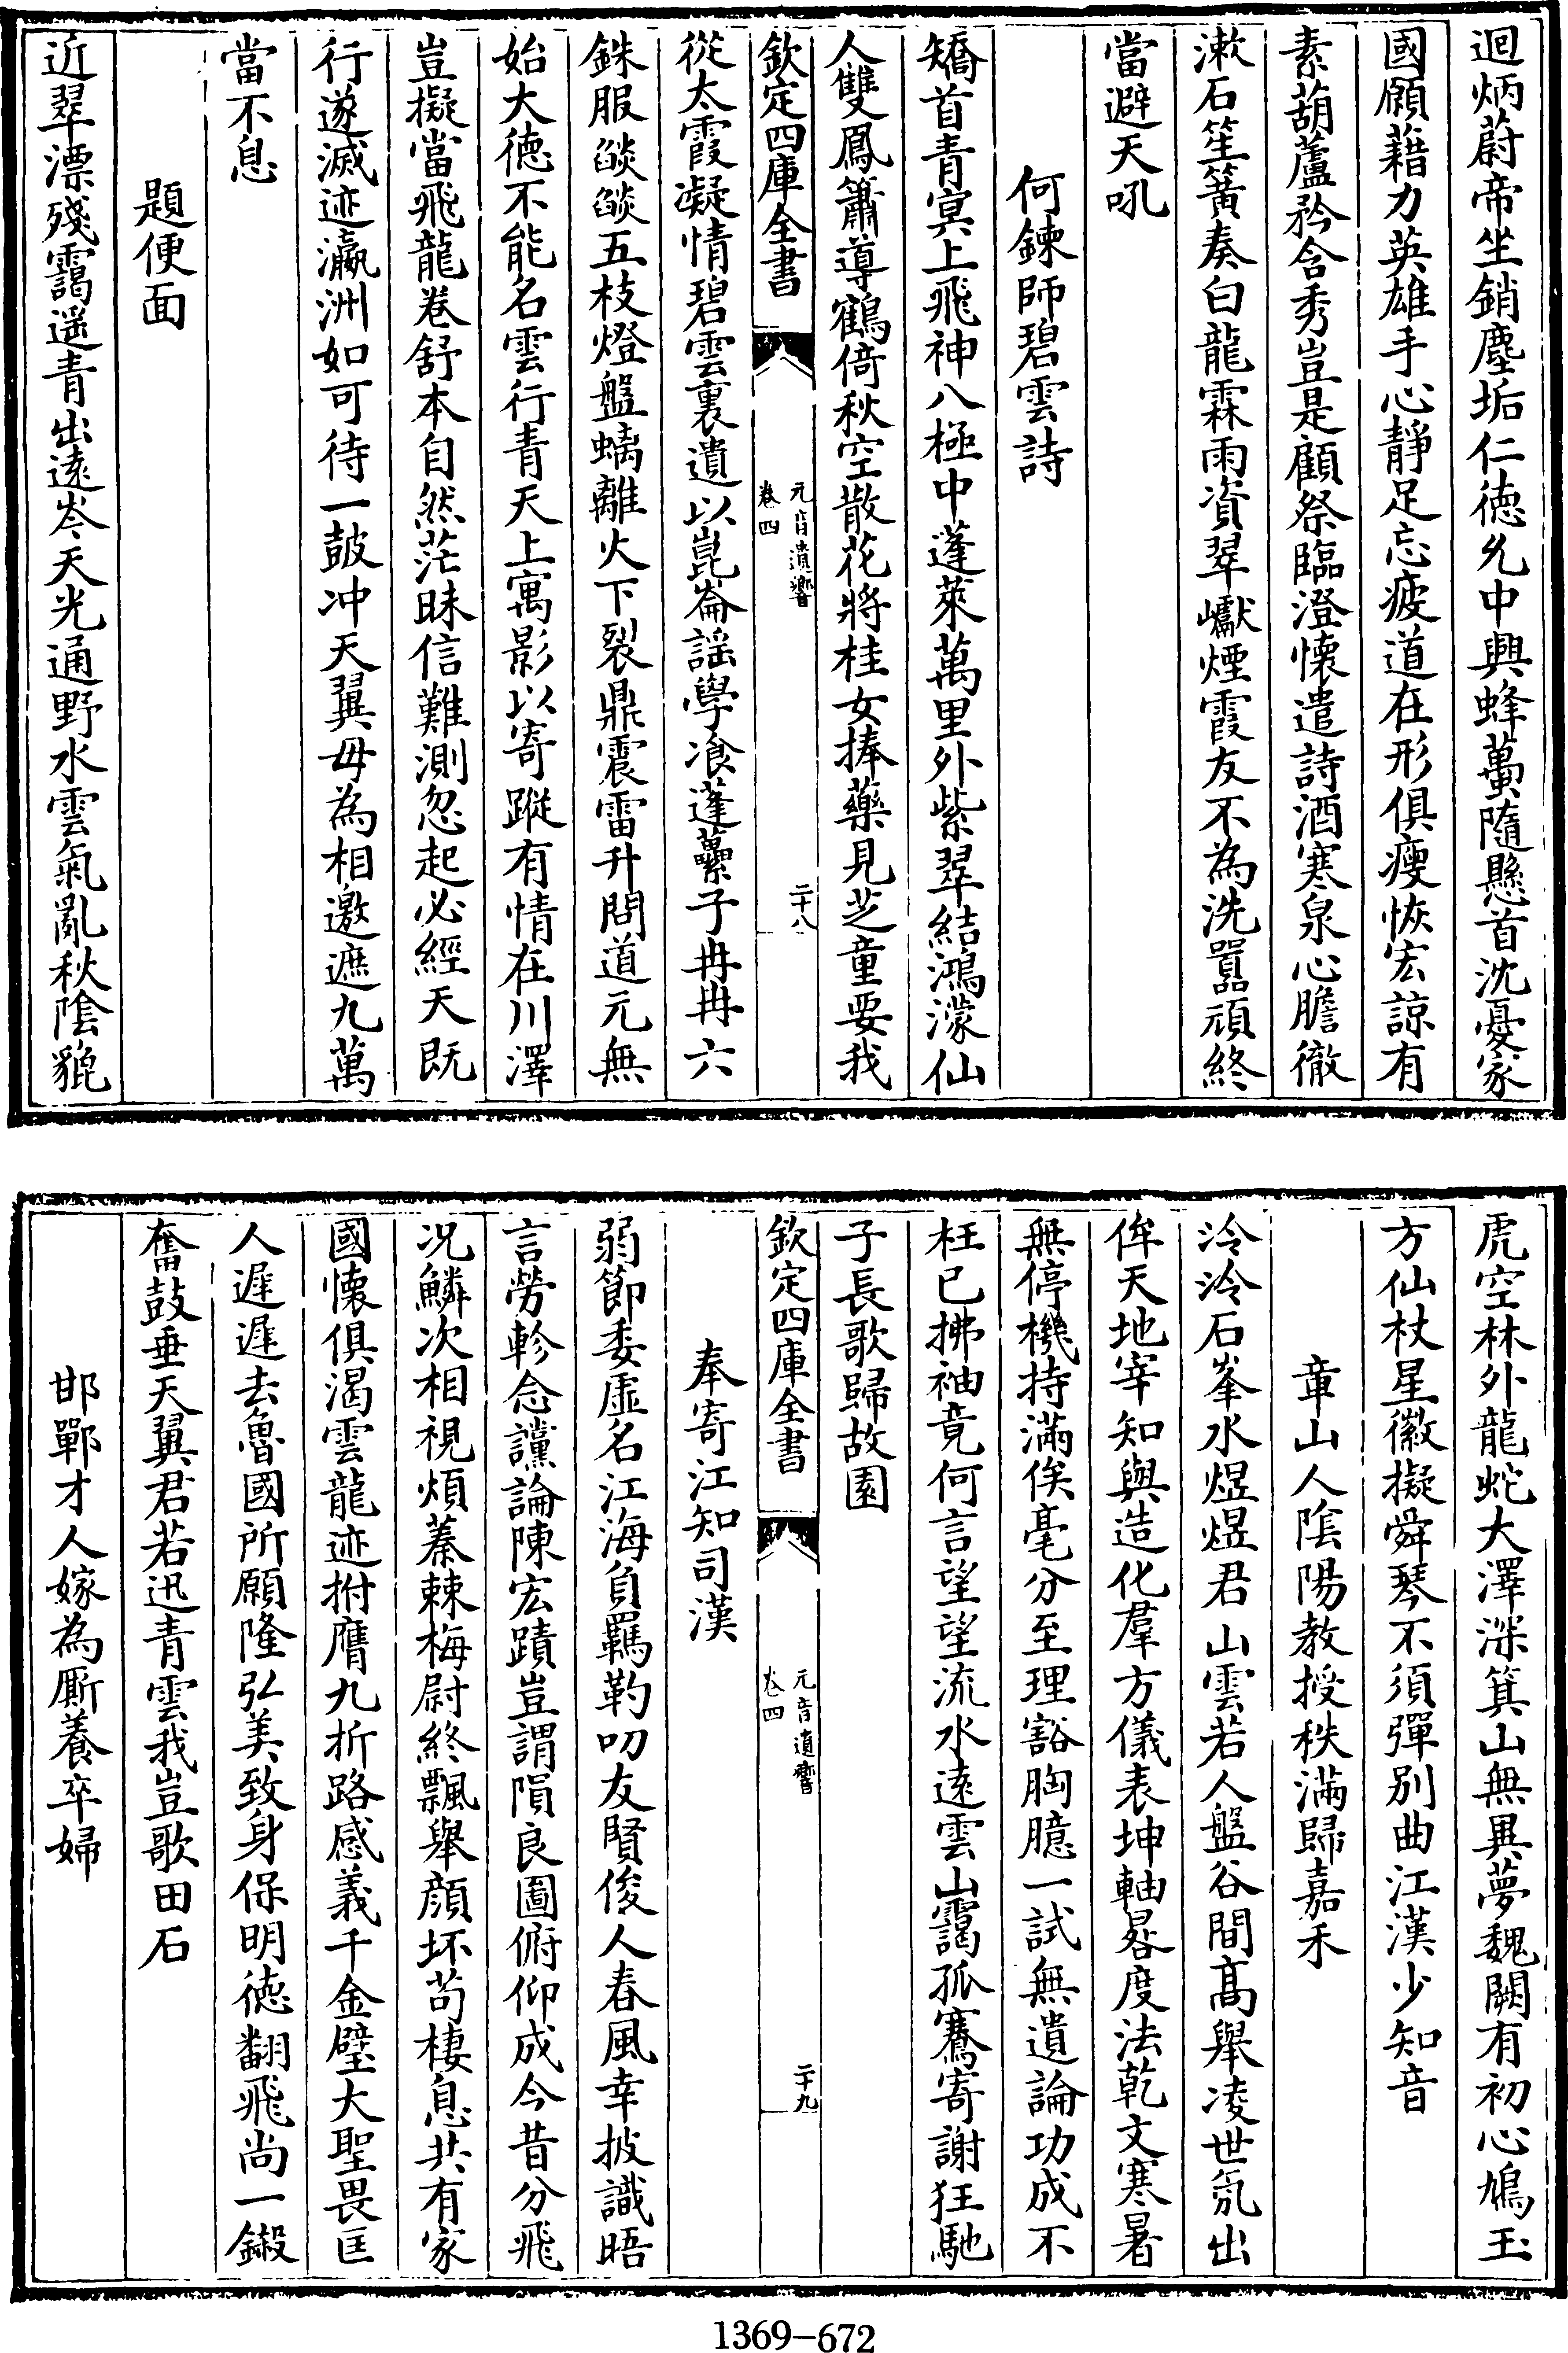 迴炳蔚帝坐銷塵垢仁徳允中興蜂蠆隨懸首沈憂家
國願藉力英雄手心靜足忘疲道在形俱瘦恢宏諒有
素葫蘆矜含秀豈是顧祭臨澄懷遣詩酒寒泉心膽徹
漱石笙簧奏白龍霖雨資翠巘煙霞友不為洗嚚頑終
當避天吼
何鍊師碧雲詩
矯首青㝠上飛神八極中蓬萊萬里外紫翠結鴻濛仙
人雙鳳簫導鶴倚秋空散花將桂女捧藥見芝童要我
欽定四庫全書
元音遺響
卷四
二十八
從太霞凝情碧雲裏遺以崑崙謡學飡蓬虆子冉冉六
銖服燄燄五枝燈盤螭離火下裂鼎震雷升問道元無
始大徳不能名雲行青天上寓影以寄蹤有情在川澤
豈擬當飛龍卷舒本自然茫昧信難測忽起必經天既
行遂滅迹瀛洲如可待一皷冲天翼毋為相邀遮九萬
當不息
題便面
近翠漂殘靄遥青出遠岑天光通野水雲氣亂秋陰貔
虎空林外龍蛇大澤深箕山無異夢魏闕有初心鳩玉
方仙杖星徽擬舜琴不須彈别曲江漢少知音
章山人陰陽教授秩滿歸嘉禾
泠泠石峯水煜煜君山雲若人盤谷間髙舉凌世氛出
侔天地宰知與造化羣方儀表坤軸晷度法乾文寒暑
無停機持滿俟毫分至理豁胸臆一試無遺論功成不
枉已拂袖竟何言望望流水遠雲山靄孤騫寄謝狂馳
子長歌歸故園
欽定四庫全書
元音遺響
卷四
二十九
奉寄江知司漢
弱節委虛名江海負羈勒叨友賢俊人春風幸披識晤
言勞軫念讜論陳宏蹟豈謂隕良圖俯仰成今昔分飛
况鱗次相視煩蓁棘梅尉終飄舉顔坏茍棲息共有家
國懷俱渴雲龍迹拊膺九折路感義千金璧大聖畏匡
人遲遲去魯國所願隆弘美致身保明徳翻飛尚一鎩
奮鼓垂天翼君若迅青雲我豈歌田石
邯鄲才人嫁為厮養卒婦
1369-672